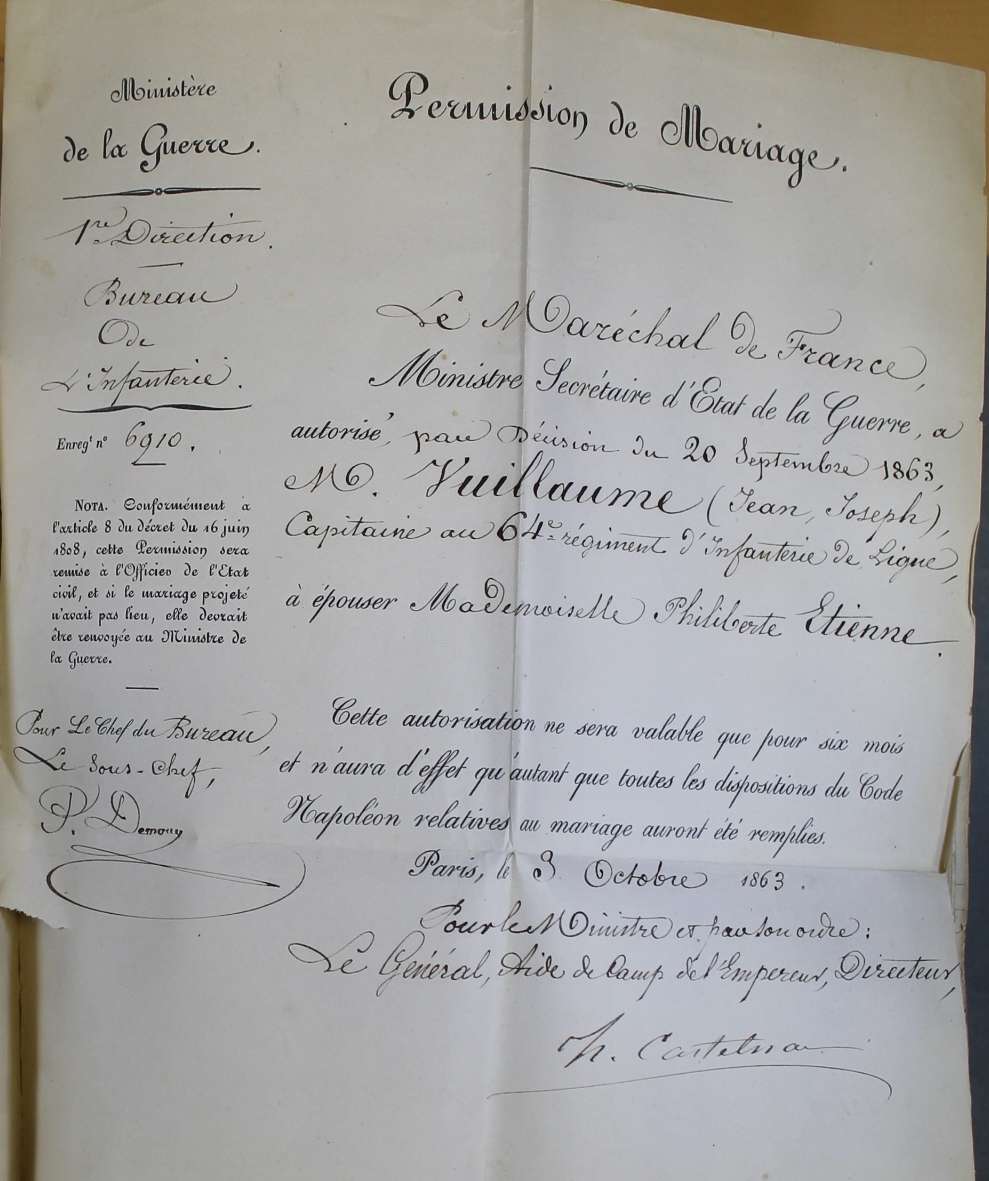 Ministère
de la Guerre.
1re Direction.
Bureau
De
L'Infanterie.
Enregt n° 6910.
NOTA. Conformément à
l'article 8 du décret du 16 juin
1808, cette Permission sera
remise à l'Officier de l'Etat
civil, et si le mariage projeté
n'avait pas lieu, elle devrait
être renvoyée au Ministre de
la Guerre.
Pour Le Chef du Bureau,
Le Sous-Chef,
P. Demouy
Permission de Mariage.
Le Maréchal de France,
Ministre Secrétaire d'Etat de la Guerre, a
autorisé, par Décision du 20 Septembre 1863,
M. Vuillaume (Jean, Joseph),
Capitaine au 64e régiment d'Infanterie de Ligne,
à épouser Mademoiselle Philiberte Etienne.
Cette autorisation ne sera valable que pour six mois
et n'aura d'effet qu'autant que toutes les dispositions du Code
Napoléon relatives au mariage auront été remplies.
Paris, le 3 Octobre 1863.
Pour le Ministre et par son ordre:
Le Général, Aide de Camp de l'Empereur, Directeur,
Castelnau